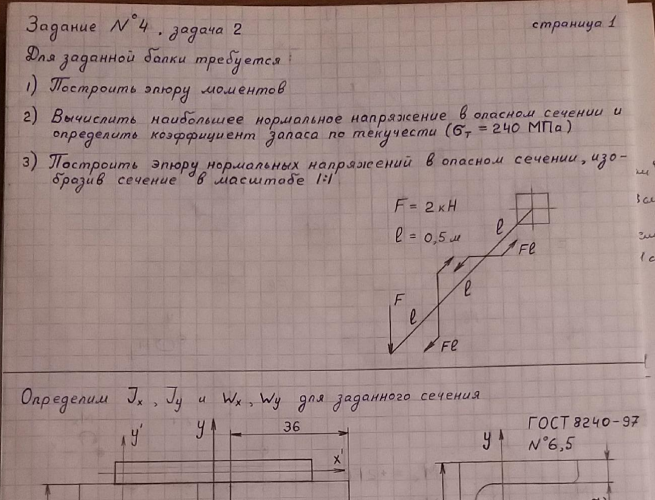 Задание №4, задача 2
страница 1
Для заданной балки требуется
1) Построить эпюру моментов
2) Вычислить наибольшее нормальное напряжение в опасном сечении и
определить коэффициент запаса по текучести (σт = 240 МПа)
3) Построить эпюру нормальных напряжений в опасном сечении, изо-
бразив сечение в масштабе 1:1
F = 2 кН
ℓ = 0,5 м
ℓ
Fℓ
F
ℓ
ℓ
Fℓ
Определим Jx, Jy и Wx, Wy для заданного сечения
ГОСТ 8240-97
№6,5
y'
y
36
x'
y